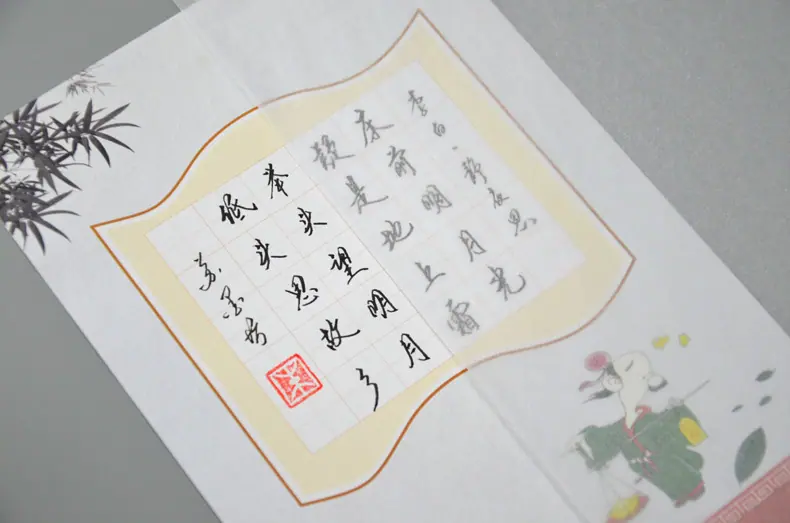 李白·静夜思
床前明月光
疑是地上霜
举头望明月
低头思故乡